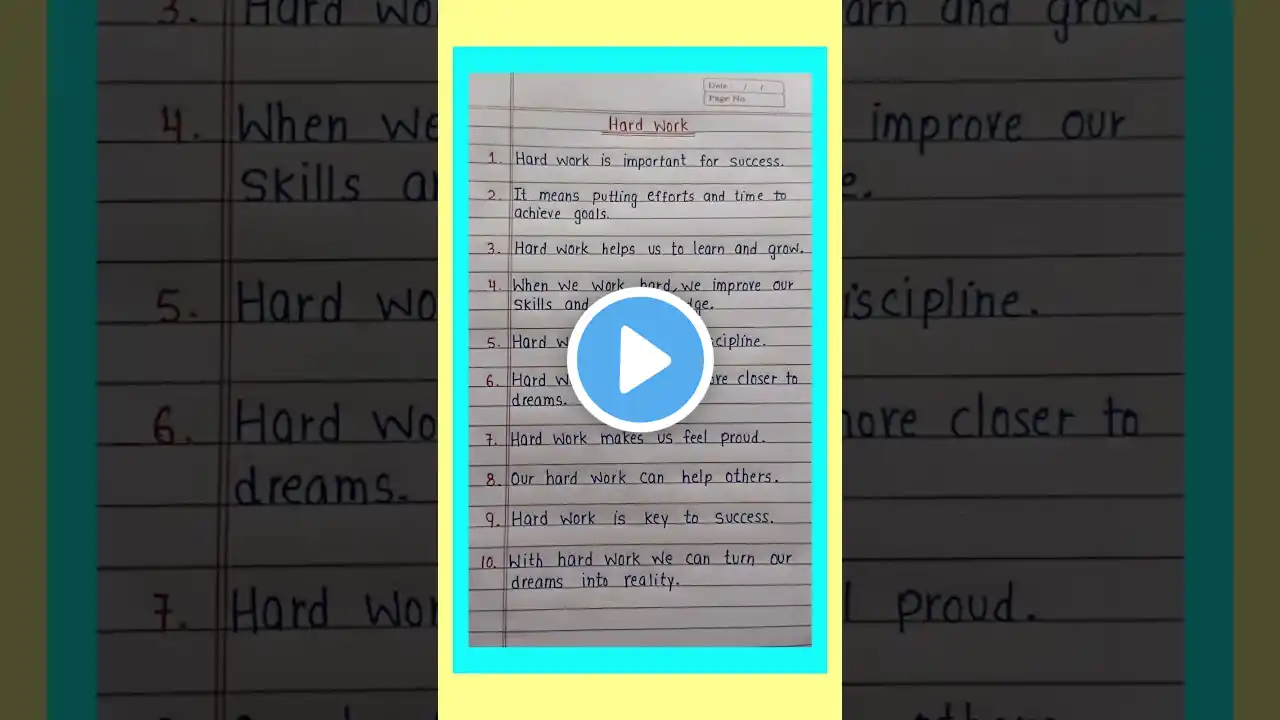 Date / /
Page No.
Hard Work
1. Hard work is important for success.
2. It means putting efforts and time to
achieve goals.
3. Hard work helps us to learn and grow.
4. When we work hard, we improve our
skills and
5. Hard
6. Hard closer to
dreams.
7. Hard work makes us feel proud.
8. Our hard work can help others.
9. Hard work is key to success.
10. With hard work we can turn our
dreams into reality.